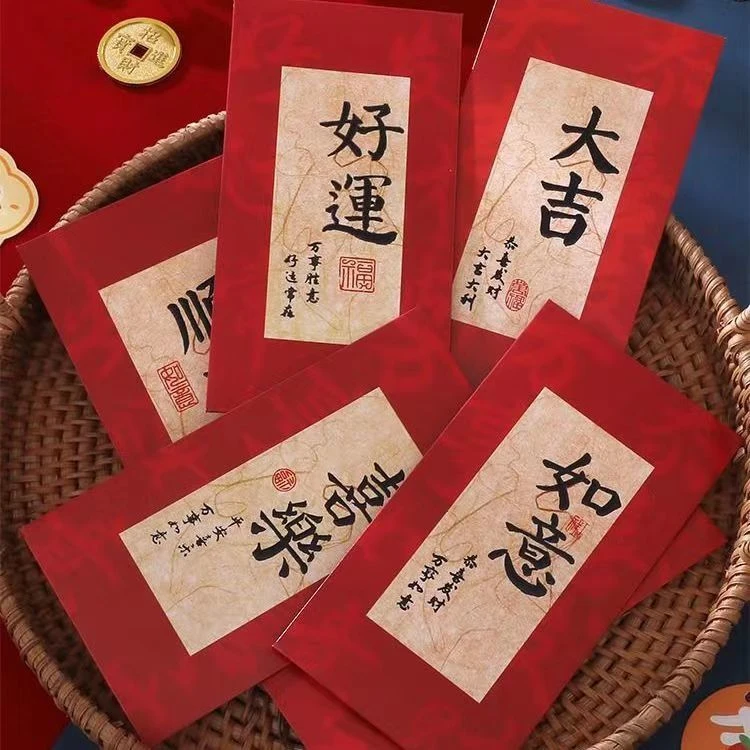 招進
寶財
好運
万事胜意
好运常在
福
大吉
恭喜发财
大吉大利
順
喜樂
平安喜乐
万事如意
如意
恭喜发财
万事如意